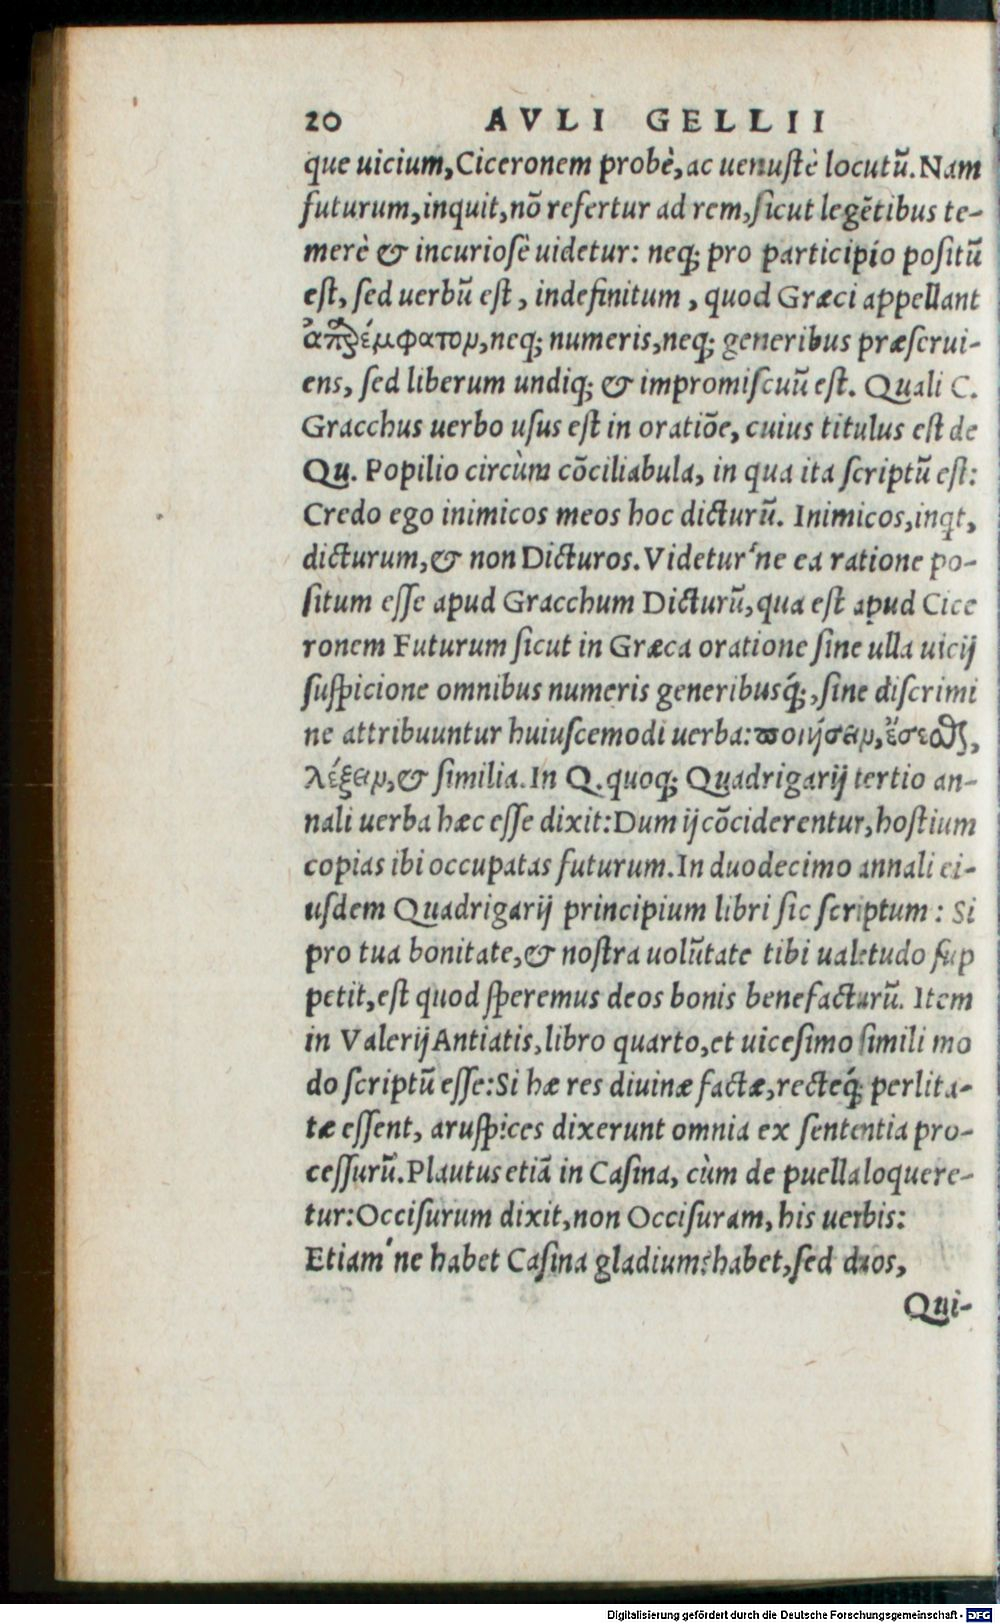 20 AVLI GELLII
que uicium, Ciceronem probè, ac uenustè locutũ. Nam
futurum, inquit, nõ refertur ad rem, sicut legẽtibus te-
merè & incuriosè uidetur: neq; pro participio positũ
est, sed uerbũ est, indefinitum, quod Græci appellant
ἀπαρέμφατον, neq; numeris, neq; generibus præserui-
ens, sed liberum undiq; & impromiscuũ est. Quali C.
Gracchus uerbo usus est in oratiõe, cuius titulus est de
Qu. Popilio circùm cõciliabula, in qua ita scriptũ est:
Credo ego inimicos meos hoc dicturũ. Inimicos, inqt,
dicturum, & non Dicturos. Videtur'ne ea ratione po-
situm esse apud Gracchum Dicturũ, qua est apud Cice
ronem Futurum sicut in Græca oratione sine ulla uicij
suspicione omnibus numeris generibusq́;, sine discrimi
ne attribuuntur huiuscemodi uerba: ποιήσειν, ἔσεσθαι,
λέξειν, & similia. In Q. quoq; Quadrigarij tertio an-
nali uerba hæc esse dixit: Dum ij cõciderentur, hostium
copias ibi occupatas futurum. In duodecimo annali ei-
usdem Quadrigarij principium libri sic scriptum: Si
pro tua bonitate, & nostra uolũtate tibi ualetudo sup
petit, est quod speremus deos bonis benefacturũ. Item
in Valerij Antiatis, libro quarto, et uicesimo simili mo
do scriptũ esse: Si hæ res diuinæ factæ, recteq́; perlita-
tæ essent, aruspices dixerunt omnia ex sententia pro-
cessurũ. Plautus etiã in Casina, cùm de puella loquere-
tur: Occisurum dixit, non Occisuram, his uerbis:
Etiam'ne habet Casina gladium? habet, sed duos,
Qui-
Digitalisierung gefördert durch die Deutsche Forschungsgemeinschaft - DFG